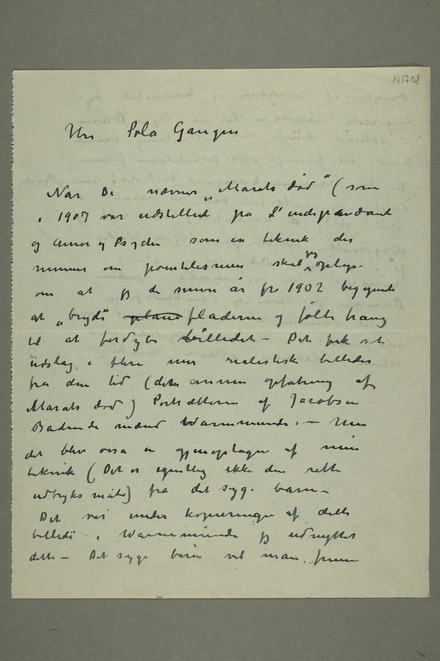 N 1708
Hr Pola Gauguin
Når De nævner „Marats død" (som
i 1907 var udstillet på l'indépendant
og Amor og Psyche som en teknik der
minner om pointelismen skal jeg oplyse
om at jeg de senere år fra 1902 begyndte
at „bryde" plane fladerne og følte trang
til at fordybe billedet – Det fik sit
udslag i flere mer realistiske billeder
fra den tid (den annen opfatning af
Marats død) Portrætterne af Jacobsen
Badende mænd Warnemünde. – Men
det blev osså en gjenoptagen af min
teknik (Det er egentlig ikke den rette
udtryks måde) fra det syge barn –
Det var under kopieringen af dette
billede i Warnemünde jeg udnyttet
dette – Det syge barn vil man finne